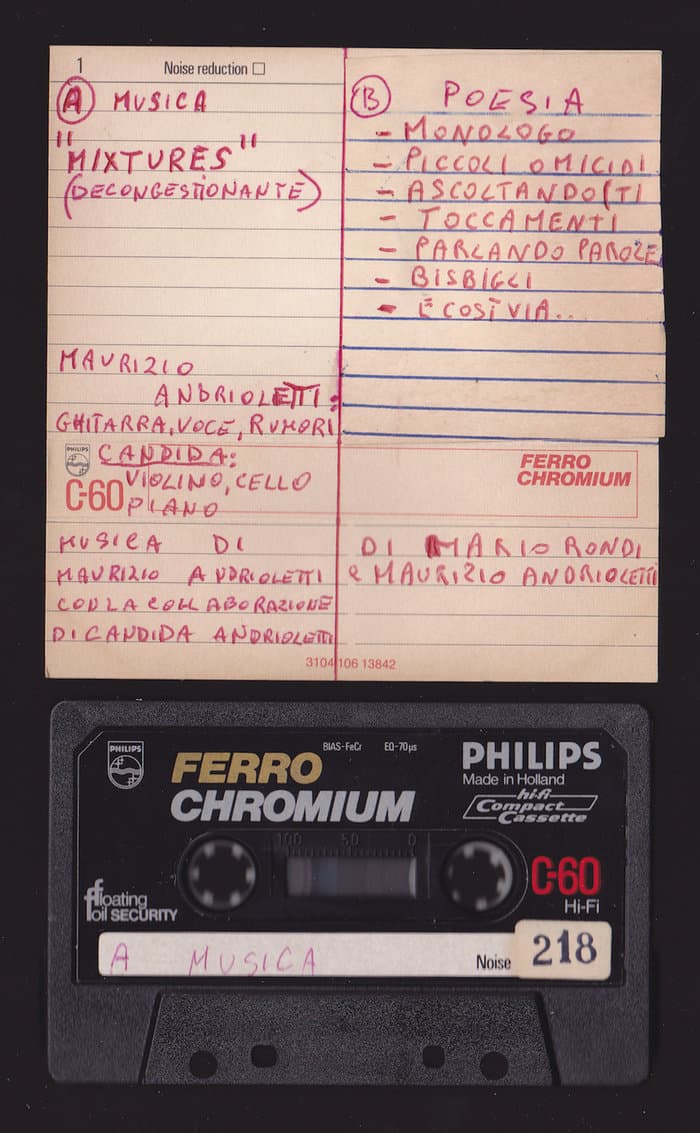 1
Noise reduction
A MUSICA
"MIXTURES"
(DECONGESTIONANTE)
MAURIZIO
ANDRIOLETTI:
GHITARRA, VOCE, RUMORI
CANDIDA:
VIOLINO, CELLO
PIANO
PHILIPS
C-60
MUSICA DI
MAURIZIO ANDRIOLETTI
CON LA COLLABORAZIONE
DI CANDIDA ANDRIOLETTI
B POESIA
- MONOLOGO
- PICCOLI OMICIDI
- ASCOLTANDO(TI
- TOCCAMENTI
- PARLANDO PAROLE
- BISBIGLI
- E COSÌ VIA...
FERRO
CHROMIUM
DI MARIO RONDI
e MAURIZIO ANDRIOLETTI
3104 106 13842
PHILIPS
BIAS-FeCr EQ-70µs
FERRO
CHROMIUM
PHILIPS
Made in Holland
hi-fi
Compact
Cassette
100 50 0
C-60
Hi-Fi
floating
foil SECURITY
A MUSICA
Noise
218